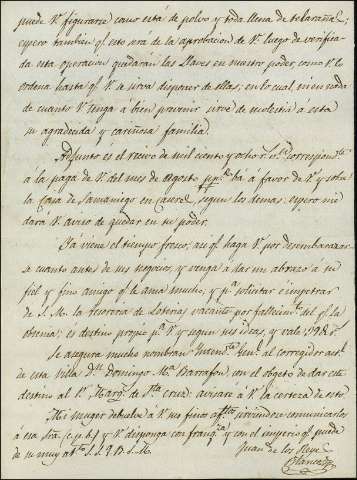 puede V. figurarse como está de polvo y toda llena de telarañas;
espero tambien qᵉ esto será de la aprobacion de V. luego de verifica-
da esta operacion quedarán las Llaves en nuestro poder como V. lo
ordena hasta qᵉ V. se sirva disponer de ellas; en lo cual, ni en nada
de cuanto V. tenga á bien prevenir sirve de molestia a esta
su agradecida y cariñosa familia.
Adjunto es el recivo de mil ciento y ocho r.ˢ v.ⁿ correspond.ᵗᵉ
a la paga de V. del mes de Agosto pp.ᵈᵒ bá a favor de V. y sobre
la Casa de Samaniego en segun los demas; espero me
dará V. aviso de quedar en su poder.
Ya viene el tiempo fresco; así qᵉ haga V. por desembarazar
se cuanto antes de sus negocios, y venga a dar un abrazo a su
fiel y fino amigo qᵉ le ama mucho; y pᵃ solicitar é impetrar
de S. M. la tesorera de Loterias vacante por fallecim.ᵗᵒ del qᵉ la
obtenia; es destino propio pᵃ V. y segun sus ideas, y vale
Se asegura mucho nombran Intend.ᵗᵉ al corregidor act.ˡ
de esta villa D.ⁿ Domingo M.ᵃ Barrafon, con el objeto de dar este
destino al S.ʳ Marq.ˢ de S.ᵗᵃ cruz: avisaré a V. la certeza de esto.
Mi muger debuelve á V. sus finos af.ᵗᵒˢ sirviendose comunicarlos
á esa Sra. (c. p. b.) y V. disponga con franq.ᶻᵃ y con el imperio qᵉ puede
de su muy at.ᵗᵒ S. S. Q. B. S. M.
Juan de los Reyes